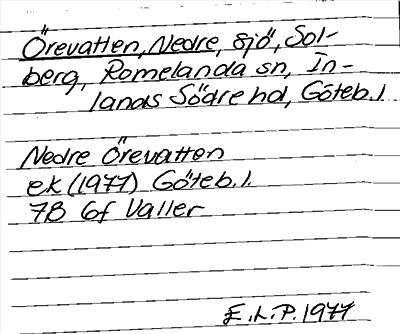 Örevatten, Nedre, sjö, Sol-
berg, Romelanda sn, In-
lands Södre hd, Göteb. l.
Nedre Örevatten
ek (1977) Göteb. l.
7B 6f Valler
E.L.P. 1977